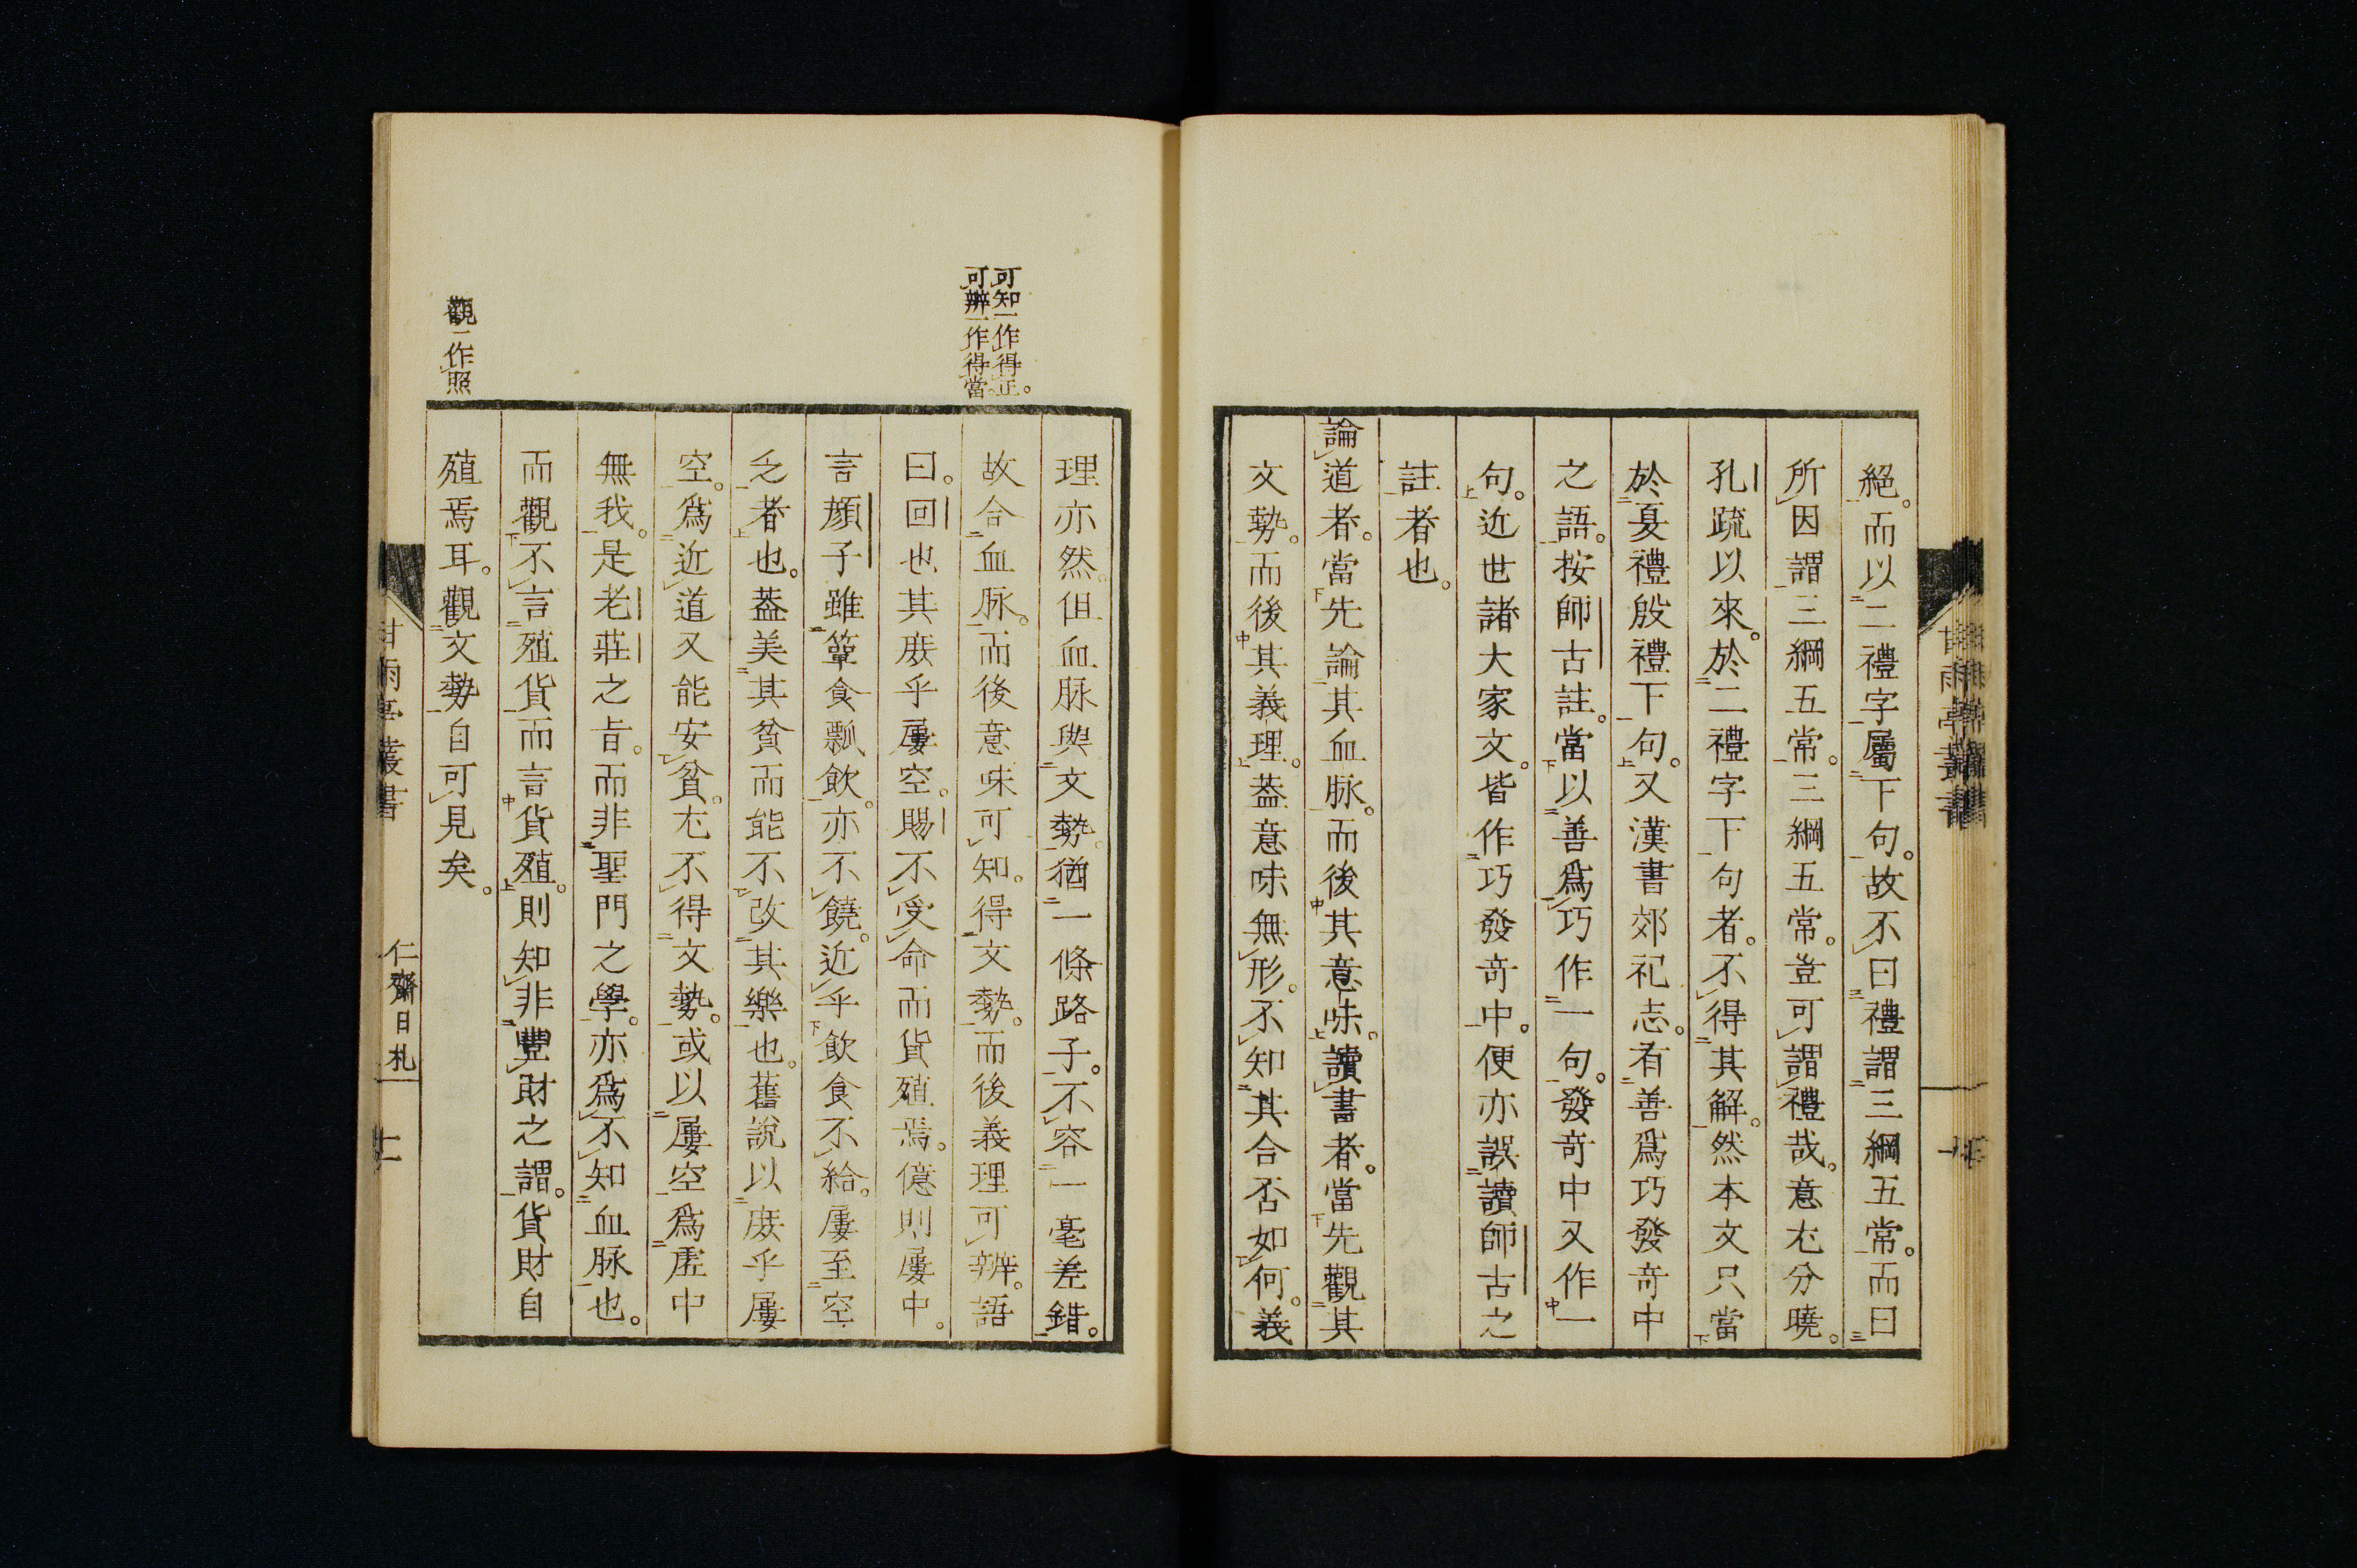 絕。而以二禮字屬下句。故不曰禮謂三綱五常。而曰
所因謂三綱五常。三綱五常。豈可謂禮哉。意尤分曉。
孔疏以來。於二禮字下句者。不得其解。然本文只當
於夏禮殷禮下句。又漢書郊祀志。有善爲巧發奇中
之語。按師古註。當以善爲巧作一句。發奇中又作一
句。近世諸大家文。皆作巧發奇中。便亦誤讀師古之
註者也。
論道者。當先論其血脉。而後其意味。讀書者。當先觀其
文勢。而後其義理。葢意味無形。不知其合否如何。義
理亦然。但血脉與文勢。猶一條路子。不容一毫差錯。
故合血脉。而後意味可知。得文勢。而後義理可辨。語
曰。回也其庶乎屢空。賜不受命而貨殖焉。億則屢中。
言顔子雖簞食瓢飲。亦不饒。近乎飲食不給。屢至空
乏者也。葢美其貧而能不改其樂也。舊說以庶乎屢
空。爲近道又能安貧。尤不得文勢。或以屢空爲虛中
無我。是老莊之旨。而非聖門之學。亦爲不知血脉也。
而觀不言殖貨而言貨殖。則知非豐財之謂。貨財自
殖焉耳。觀文勢自可見矣。
可知一作得正。
可辨一作得當。
觀一作照
甘雨亭叢書
仁齋日札